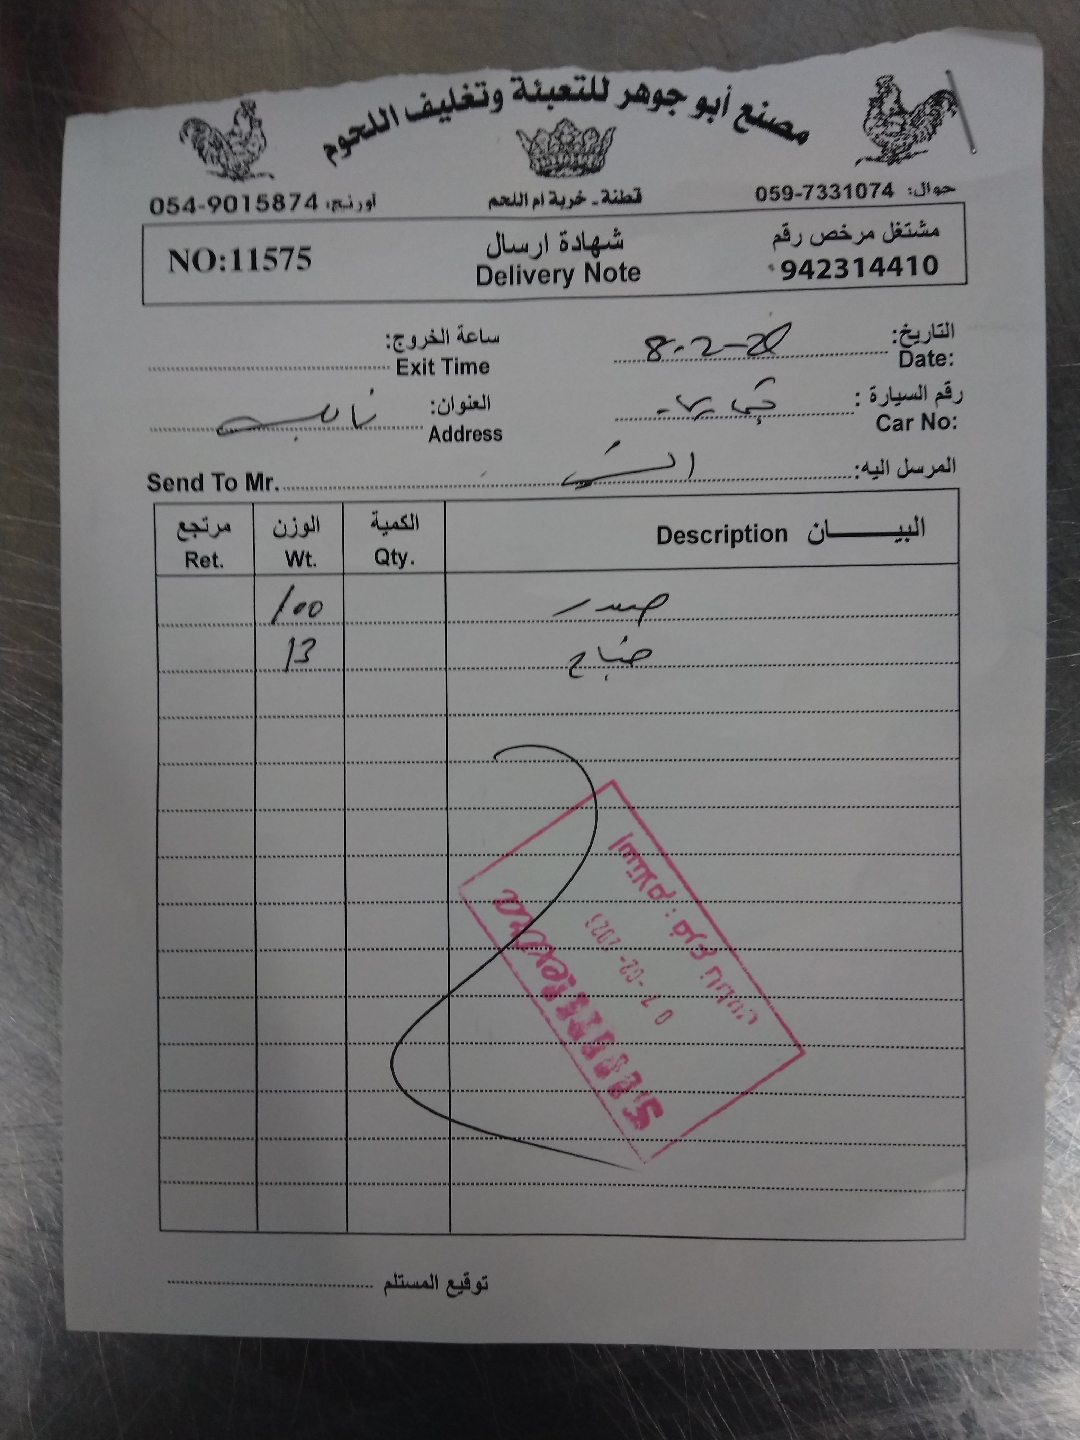 مصنع أبو جوهر للتعبئة وتغليف اللحوم
حوال: 059-7331074
قطنة - خربة ام اللحم
اورنج: 054-9015874
مشتغل مرخص رقم
942314410
شهادة ارسال
Delivery Note
NO:11575
التاريخ: 8-2-20
Date:
ساعة الخروج:
Exit Time
رقم السيارة :
Car No:
العنوان: نابلس
Address
المرسل اليه:
Send To Mr.
البيـــــان Description
الكمية
Qty.
الوزن
Wt.
مرتجع
Ret.
صدر 100
جناح 13
استلام : فرع نابلس
0 7 -02- 2023
توقيع المستلم